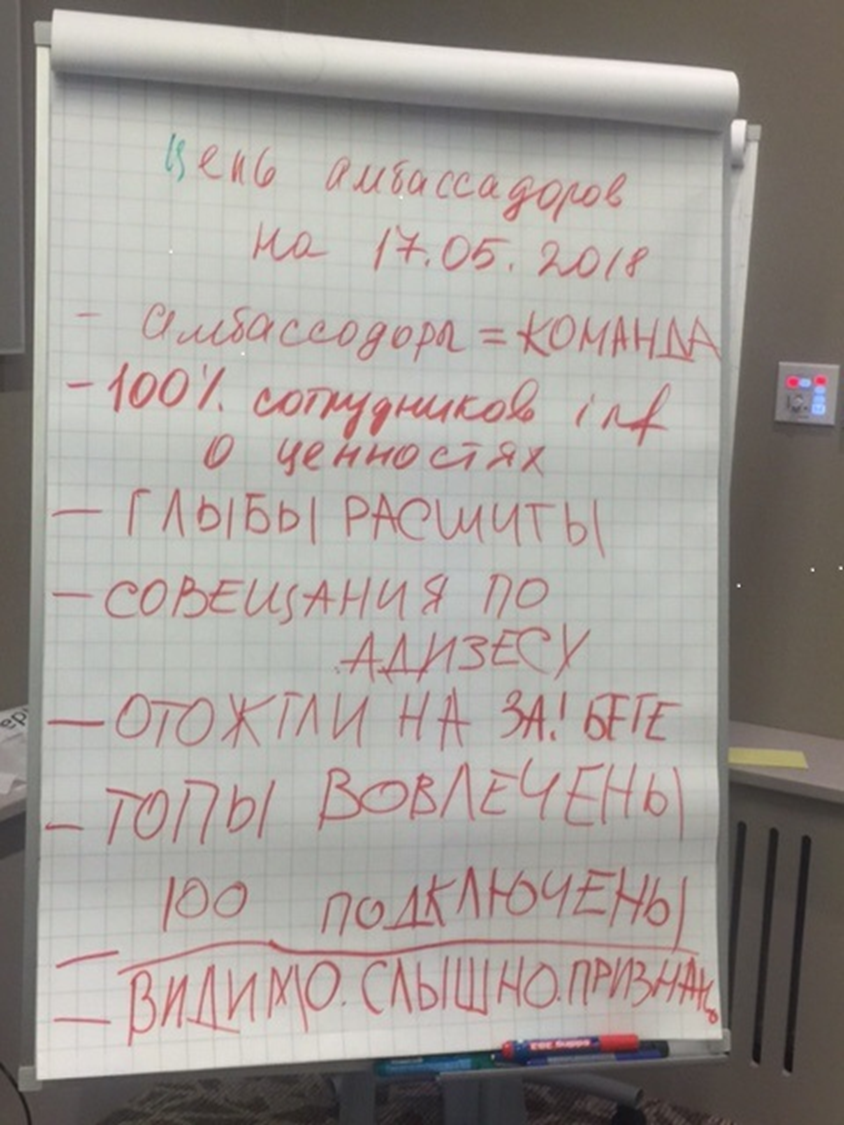 цель амбассадоров
на 17.05.2018
- амбассодоры = КОМАНДА
- 100% сотрудников inf
о ценностях
- ГЛЫБЫ РАСШИТЫ
- СОВЕЩАНИЯ ПО
АДИЗЕСУ
- ОТОЖГЛИ НА ЗА! БЕГЕ
- ТОПЫ ВОВЛЕЧЕНЫ
100 ПОДКЛЮЧЕНЫ
-
- ВИДИМО. СЛЫШНО. ПРИЗНАНО
edding 383